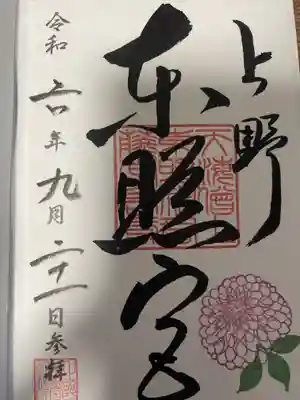 上野
東照宮
令和六年九月二十一日参拝